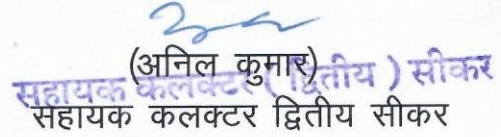 (अनिल कुमार)
सहायक कलक्टर (द्वितीय) सीकर
सहायक कलक्टर द्वितीय सीकर